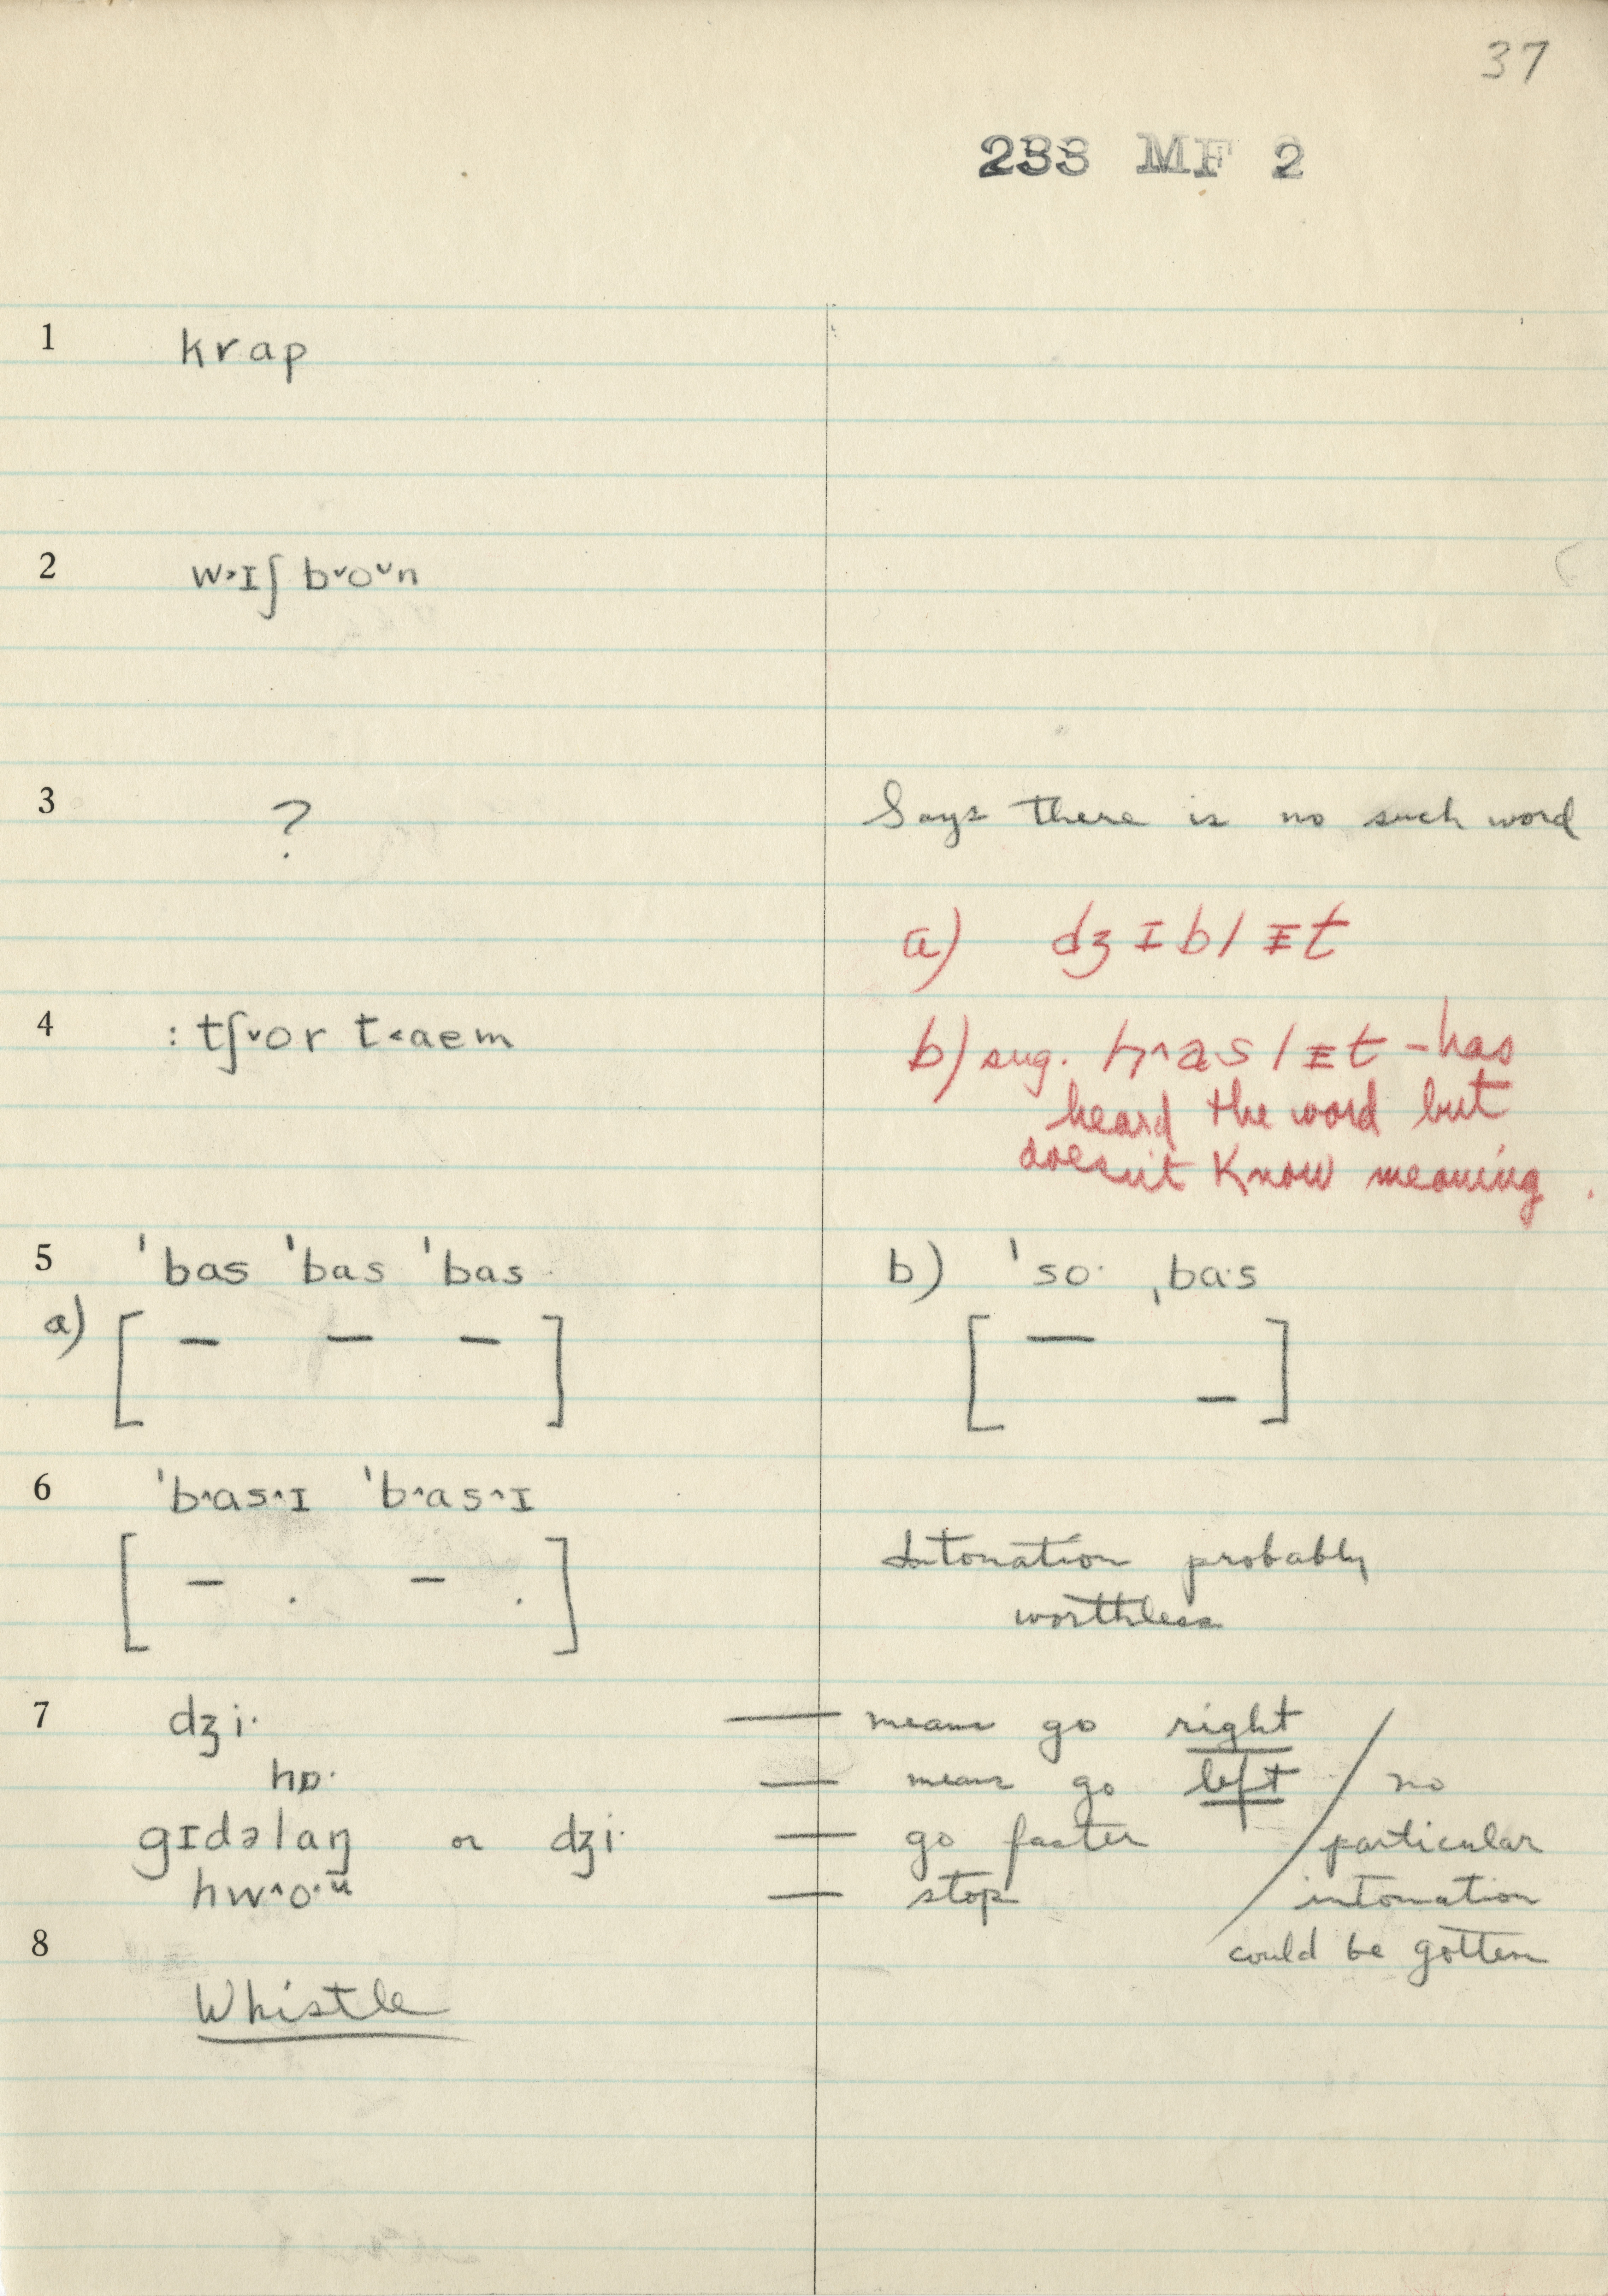 37
233 MF 2
1 krap
2 w˃ɪʃ b˅o˅n
3 ? Says there is no such word
a) dʒɪblɪt
4 : tʃ˅or t˂aem
b) sug. h˄aslɪt – has
heard the word but
doesn't know meaning.
5 'bas 'bas 'bas b) 'so· ˌba·s
a) [ – – – ] [ – – ]
6 'b˄as˄ɪ 'b˄as˄ɪ
[ – . – . ] Intonation probably
worthless
7 dʒi· — means go right
hɒ· — means go left / no
gɪdəlaŋ or dʒi· — go faster particular
hw˄o·ᵘ — stop intonation
8 could be gotten
Whistle